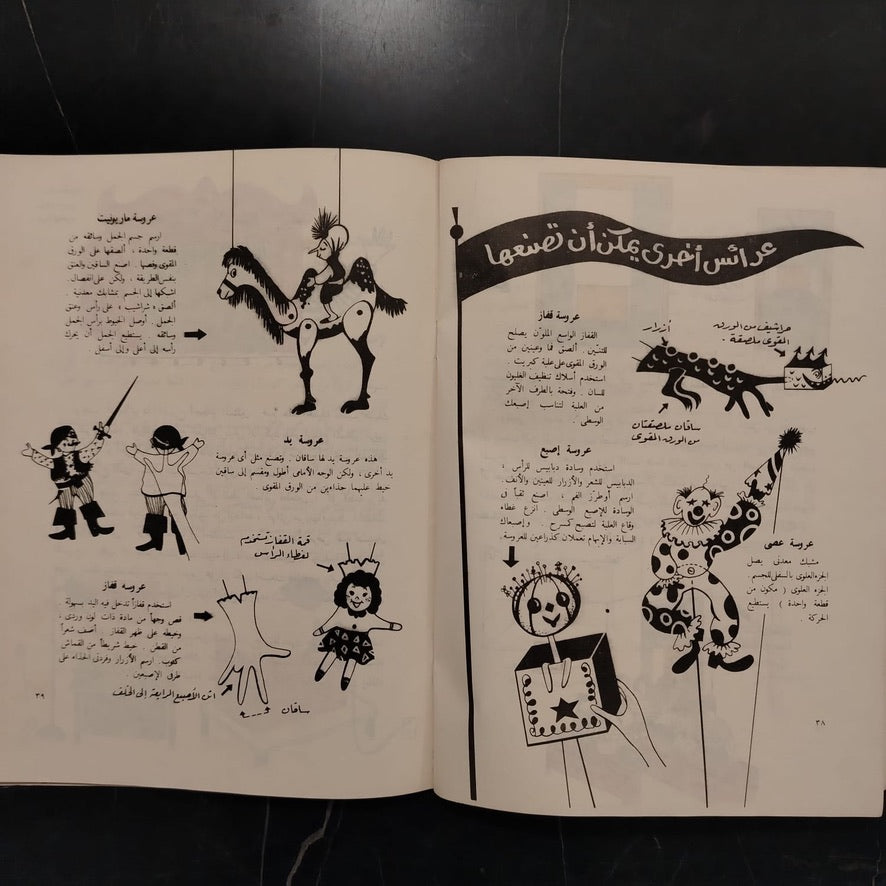 عرائس أخرى يمكن أن تصنعها
عروسة قفاز
القفاز الواسع الملوّن يصلح
للتنين . ألصق فما وعينين من
الورق المقوى على علبة كبريت .
استخدم أسلاك تنظيف الغليون
للسان . وفتحة بالطرف الآخر
من العلبة لتناسب إصبعك
الوسطى .
أزرار
حراشيف من الورق
المقوى ملصقة .
ساقان ملصقتان
من الورق المقوى
عروسة إصبع
استخدم وسادة دبابيس للرأس ،
الدبابيس للشعر والأزرار للعينين والأنف .
ارسم أو طرّز الفم ، اصنع ثقباً في
الوسادة للإصبع الوسطى . انزع غطاء
وقاع العلبة لتصبح كمسرح . وإصبعاك
السبابة والإبهام تعملان كذراعين للعروسة .
عروسة عصى
مشبك معدنى يصل
الجزء العلوى بالسفلى للجسم .
الجزء العلوى ( مكون من
قطعة واحدة ) يستطيع
الحركة .
٣٨
عروسة ماريونيت
ارسم جسم الجمل وسائقه من
قطعة واحدة ، ألصقها على الورق
المقوى وقصها . اصنع الساقين والعنق
بنفس الطريقة ، ولكن على انفصال .
اشبكها إلى الجسم بمشابك معدنية .
ألصق « شراشيب » على رأس وعنق
الجمل . أوصل الخيوط برأس الجمل
وسائقه . يستطيع الجمل أن يحرك
رأسه إلى أعلى وإلى أسفل .
عروسة يد
هذه عروسة يد لها ساقان . وتصنع مثل أى عروسة
يد أخرى ، ولكن الوجه الأمامى أطول ومقسم إلى ساقين
خيط عليهما حذاءين من الورق المقوى .
قمة القفاز تستخدم
لغطاء الرأس
عروسه قفاز
استخدم قفازاً تدخل فيه اليد بسهولة .
قص وجهاً من مادة ذات لون وردى ،
وخيطه على ظهر القفاز . أضف شعراً
من القطن . خيط شريطاً من القماش
كثوب . ارسم الأزرار وفردتى الحذاء على
طرفى الإصبعين .
اثن الأصبع الرابعة إلى الخلف
ساقان
٣٩